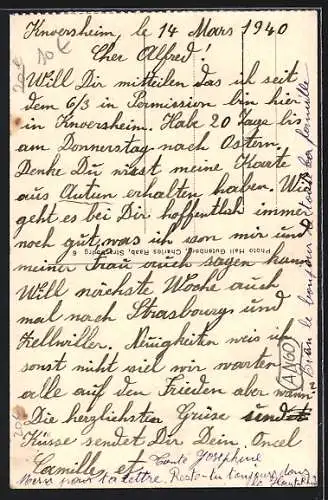 Knoersheim, le 14 Mars 1940
Cher Alfred!
Will Dir mitteilen das ich seit
dem 6/3 in Permission bin hier
in Knoersheim. Habe 20 Tage bis
am Donnerstag nach Ostern.
Denke Du wirst meine Karte
aus Autun erhalten haben. Wie
geht es bei Dir hoffentlich immer
noch gut, was ich von mir und
meiner Frau auch sagen kann
Will nächste Woche auch
mal nach Strasbourg und
Zellwiller. Neuigkeiten weis ich
sonst nicht viel wir warten
alle auf den Frieden aber wann?
Die herzlichsten Grüse
Küsse sendet Dir Dein Oncel
Camille et Tante Joséphine
Merci pour ta lettre. Reste-tu toujours dans
le Haut-Rhin
le bonjour de toute la famille
Photo Hall Gutenberg, Charles Raab, Strasbourg 6
ANGO